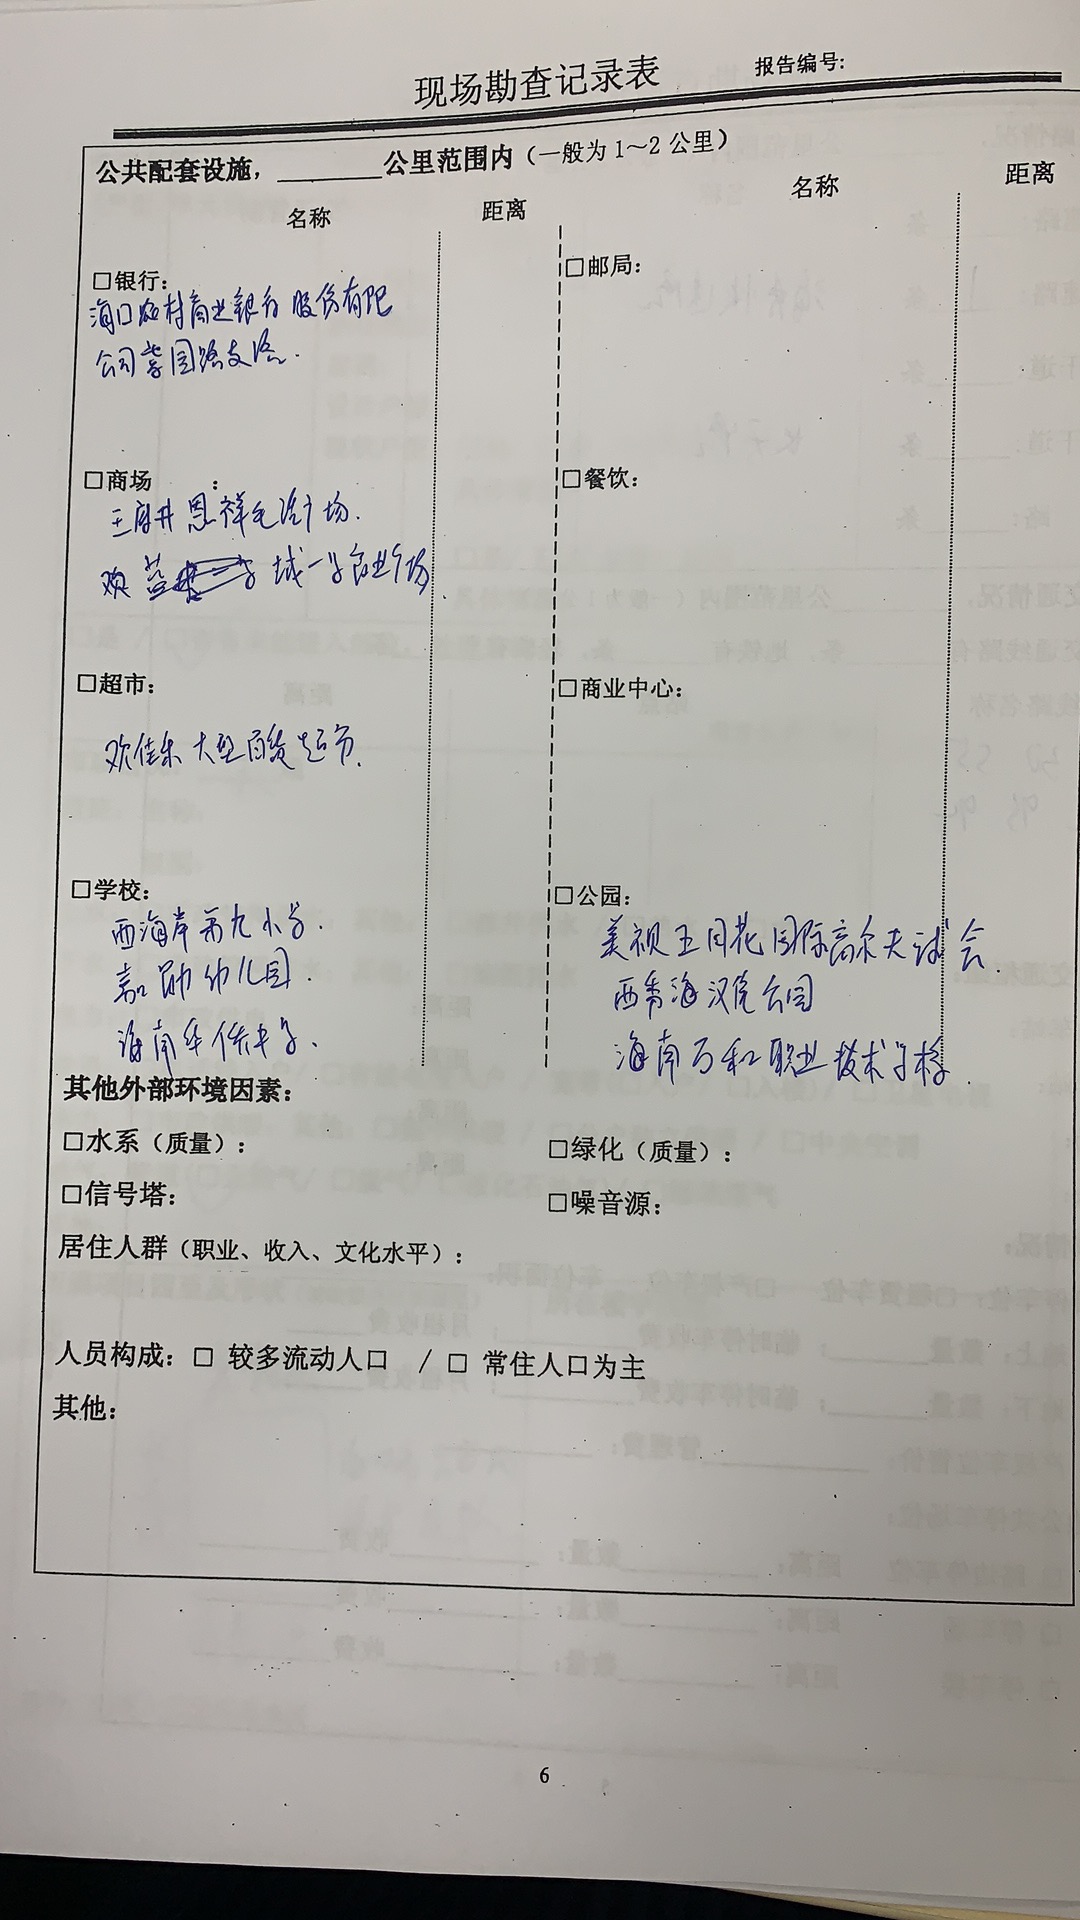 现场勘查记录表
报告编号:
公共配套设施，________公里范围内（一般为1～2公里）
名称 距离 名称 距离
□银行:
海口农村商业银行股份有限
公司 园路支
□邮局:
□商场 :
王府井恩祥 广场.
欢 城一 商业广场.
□餐饮:
□超市:
欢佳乐大型百货超市.
□商业中心:
□学校:
西海岸第九小学.
嘉勋幼儿园.
海南华侨中学.
□公园:
美视五月花国际高尔夫 会.
西秀海 公园
海南 和职业技术学校.
其他外部环境因素:
□水系（质量）: □绿化（质量）:
□信号塔: □噪音源:
居住人群（职业、收入、文化水平）:
人员构成: □ 较多流动人口 / □ 常住人口为主
其他:
6